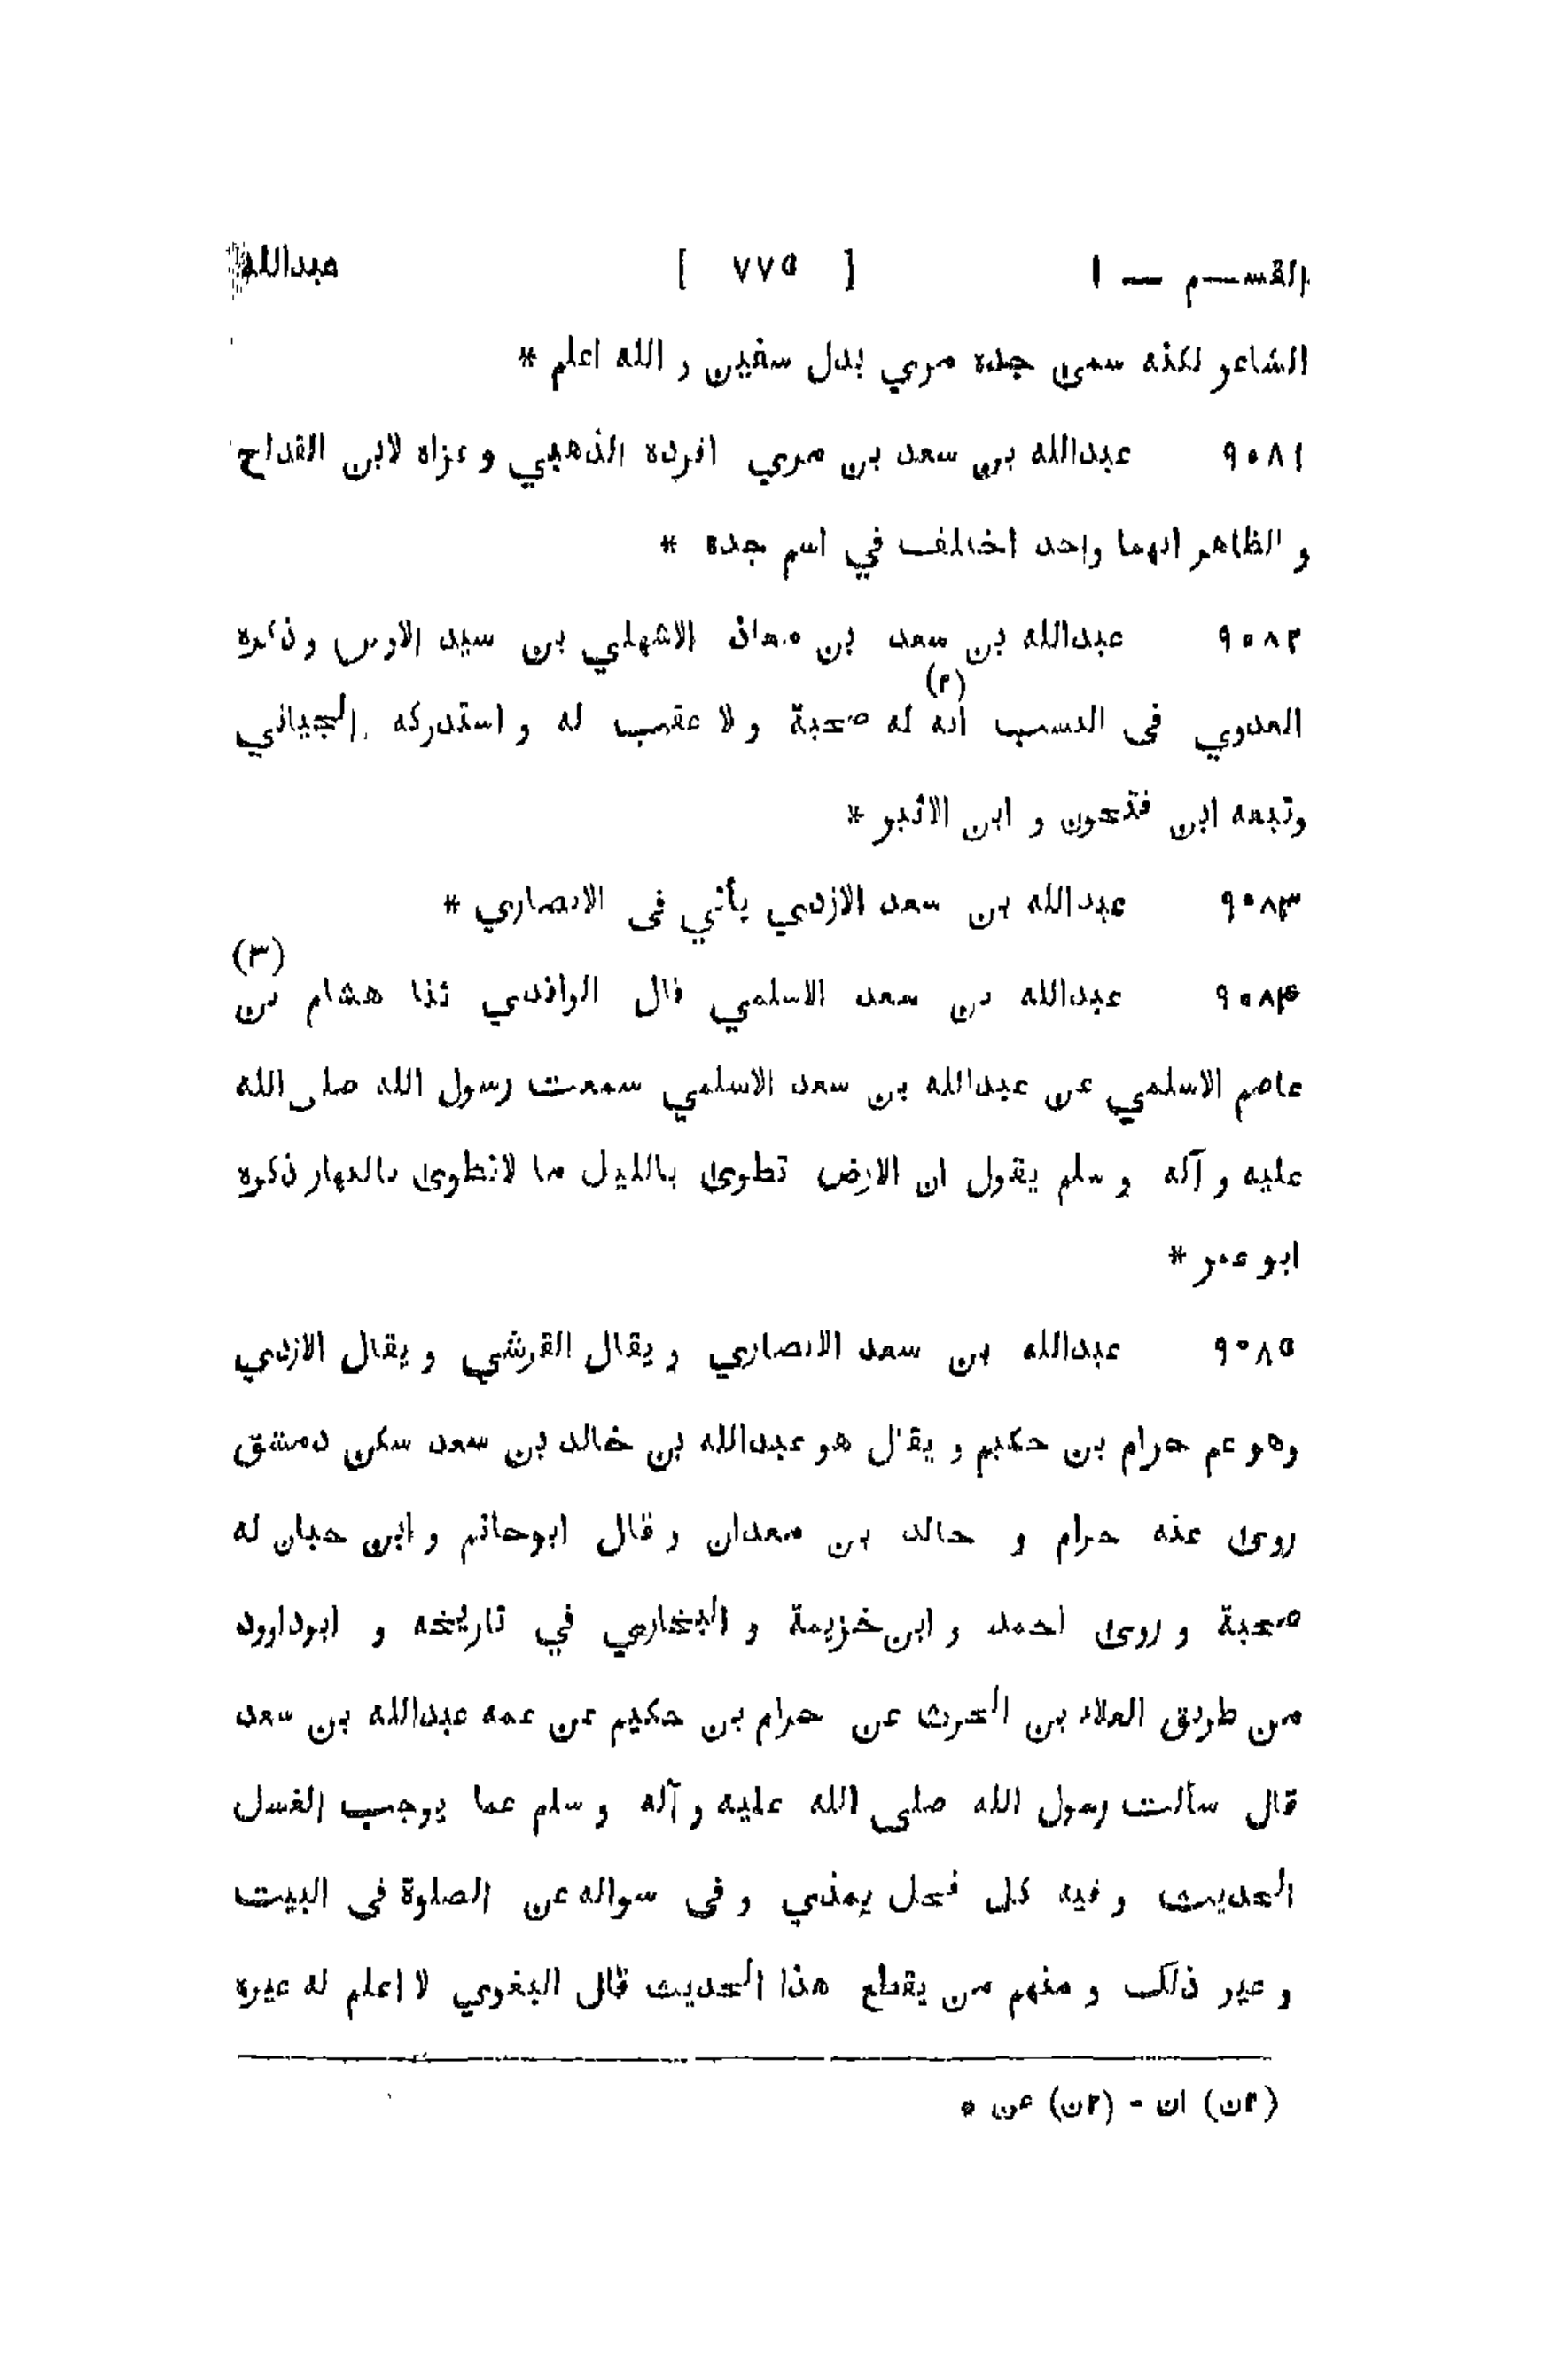 القســم — ١ [ ٧٧٥ ] عبدالله
الشاعر لكنه سمى جده مري بدل سفين و الله اعلم *
٩٠٨١ عبدالله بن سعد بن مري افرده الذهبي و عزاه لابن القداح
و الظاهر انهما واحد اختلف في اسم جده *
٩٠٨٢ عبدالله بن سعد بن معاذ الاشهلي بن سيد الاوس وذكره
العدوي فى النسب انه (٢) له صحبة و لا عقب له و استدركه الجياني
وتبعه ابن فتحون و ابن الاثير *
٩٠٨٣ عبدالله بن سعد الازدي يأتي فى الانصاري *
٩٠٨٤ عبدالله بن سعد الاسلمي قال الواقدي ثنا هشام بن (٣)
عاصم الاسلمي عن عبدالله بن سعد الاسلمي سمعت رسول الله صلى الله
عليه و آله و سلم يقول ان الارض تطوى بالليل ما لاتطوى بالنهار ذكره
ابو عمر *
٩٠٨٥ عبدالله بن سعد الانصاري و يقال القرشي و يقال الازدي
وهو عم حرام بن حكيم و يقال هو عبدالله بن خالد بن سعد سكن دمشق
روى عنه حرام و خالد بن معدان و قال ابوحاتم و ابن حبان له
صحبة و روى احمد و ابن خزيمة و البخاري في تاريخه و ابوداوود
من طريق العلاء بن الحرث عن حرام بن حكيم عن عمه عبدالله بن سعد
قال سألت رسول الله صلى الله عليه و آله و سلم عما يوجب الغسل
الحديث و فيه كل فحل يمذي و فى سواله عن الصلوة فى البيت
و غير ذلك و منهم من يقطع هذا الحديث قال البغوي لا اعلم له غيره
(٢ن) ان - (٢ن) عن *